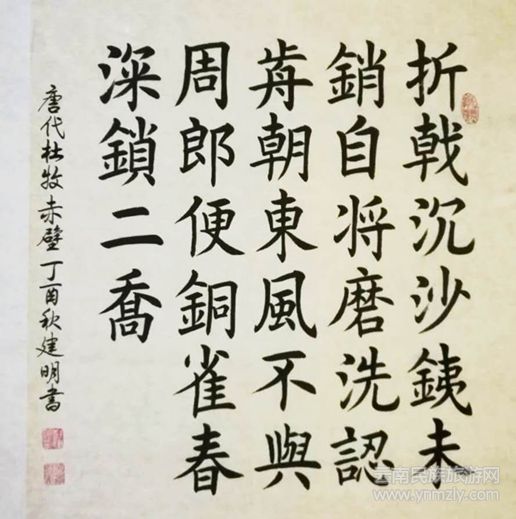 折戟沉沙鐵未
銷自将磨洗認
前朝東風不與
周郎便銅雀春
深鎖二喬
唐代杜牧赤壁丁酉秋建明書
云南民族旅游网
www.ynmzly.com